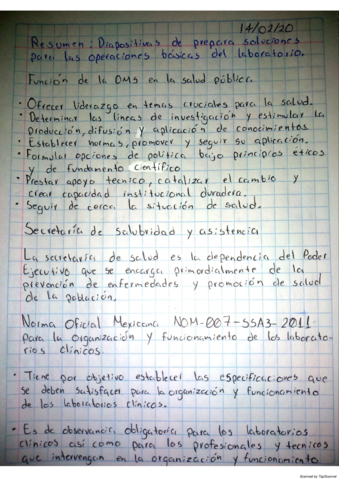 14/02/20
Resumen: Diapositivas de prepara soluciones
para las operaciones básicas del laboratorio.
Función de la OMS en la salud pública.
• Ofrecer liderazgo en temas cruciales para la salud.
• Determinar las líneas de investigación y estimular la
producción, difusión y aplicación de conocimientos
• Establecer normas, promover y seguir su aplicación.
• Formular opciones de política bajo principios eticos
y de fundamento científico
• Prestar apoyo tecnico, catalizar el cambio y
crear capacidad institucional duradera.
• Seguir de cerca la situación de salud.
Secretaría de salubridad y asistencia
La secretaría de salud es la dependencia del Poder
Ejecutivo que se encarga primordialmente de la
prevención de enfermedades y promoción de salud
de la población.
Norma Oficial Mexicana NOM-007-SSA3-2011-
Para la organización y funcionamiento de los laborato-
rios clínicos.
• Tiene por objetivo establecer las especificaciones que
se deben satisfacer para la organización y funcionamiento
de los laboratorios clínicos.
• Es de observancia obligatoria para los laboratorios
clínicos así como para los profesionales y tecnicos
que intervengan en la organización y funcionamiento
Scanned by TapScanner